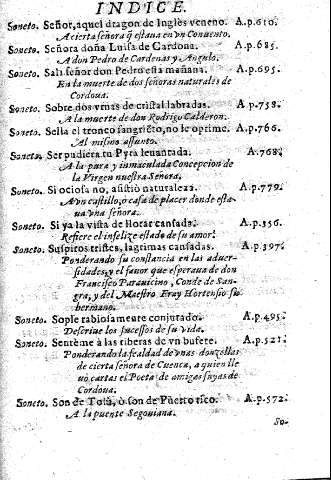 INDICE.
Soneto. Señor, aquel dragon de Ingles veneno. A.p.610.
A cierta señora q̃ estaua en vn Conuento.
Soneto. Señora doña Luisa de Cardona. A.p.685.
A don Pedro de Cardenas y Angulo.
Soneto. Sali señor don Pedro esta mañana. A.p.695.
En la muerte de dos señoras naturales de
Cordoua.
Soneto. Sobre dos vrnas de cristal labradas. A p.758.
A la muerte de don Rodrigo Calderon.
Soneto. Sella el tronco sangriẽto, no le oprime. A.p.766.
Al mismo assunto.
Soneto. Ser pudiera tu Pyra leuantada. A.768.
A la pura y inmaculada Concepcion de
la Virgen nuestra Señora.
Soneto. Si ociosa no, assistiò naturaleza. A.p.779.
A vn castillo, ò casa de plazer donde esta-
ua vna señora.
Soneto. Si ya la vista de llorar cansada. A.p.356.
Refiere el infelize estado de su amor.
Soneto. Suspiros tristes, lagrimas cansadas. A.p.397.
Ponderando su constancia en las aduer-
sidades, y el fauor que esperaua de don
Francisco Parauicino, Conde de San-
gra, y del Maestro Fray Hortensio su
hermano.
Soneto. Sople rabiosamente conjurado. A.p.495.
Descriue los sucessos de su vida.
Soneto. Sentème à las riberas de vn bufete. A.p.521.
Ponderando la fealdad de vnas donzellas
de cierta señora de Cuenca, a quien lle
uò cartas el Poeta de amigas suyas de
Cordoua.
Soneto. Son de Tolù, ò son de Puerto rico. A.p.572.
A la puente Segouiana.
So-